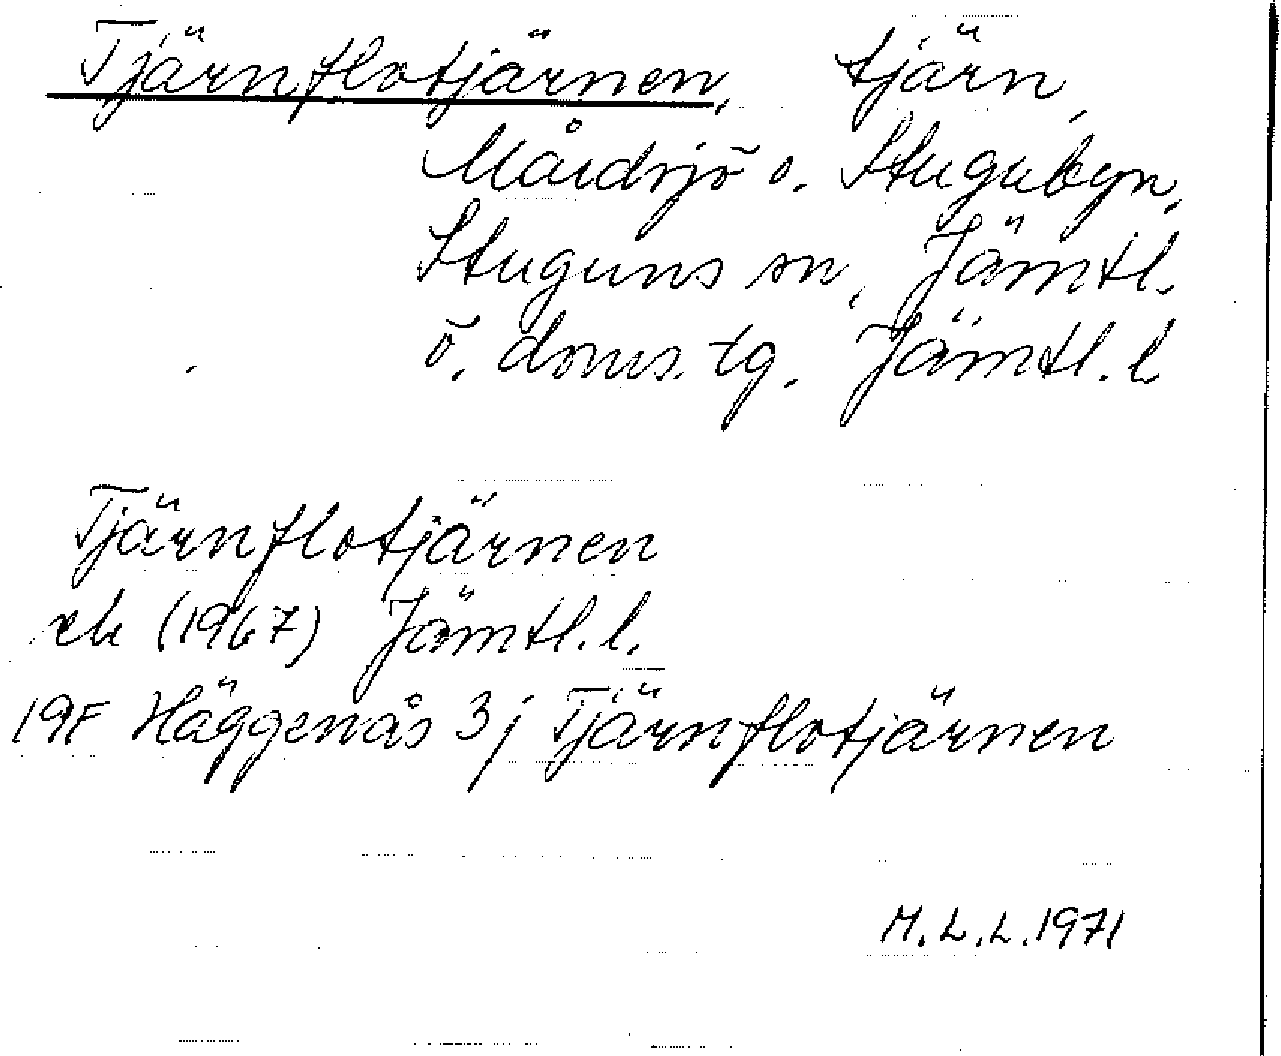 Tjärnflotjärnen, tjärn,
Mårdsjö o. Stugubyn,
Stuguns sn, Jämtl.
ö. doms. tg. Jämtl. l
Tjärnflotjärnen
ek (1967) Jämtl. l.
19F Häggenås 3j Tjärnflotjärnen
M.L.L. 1971